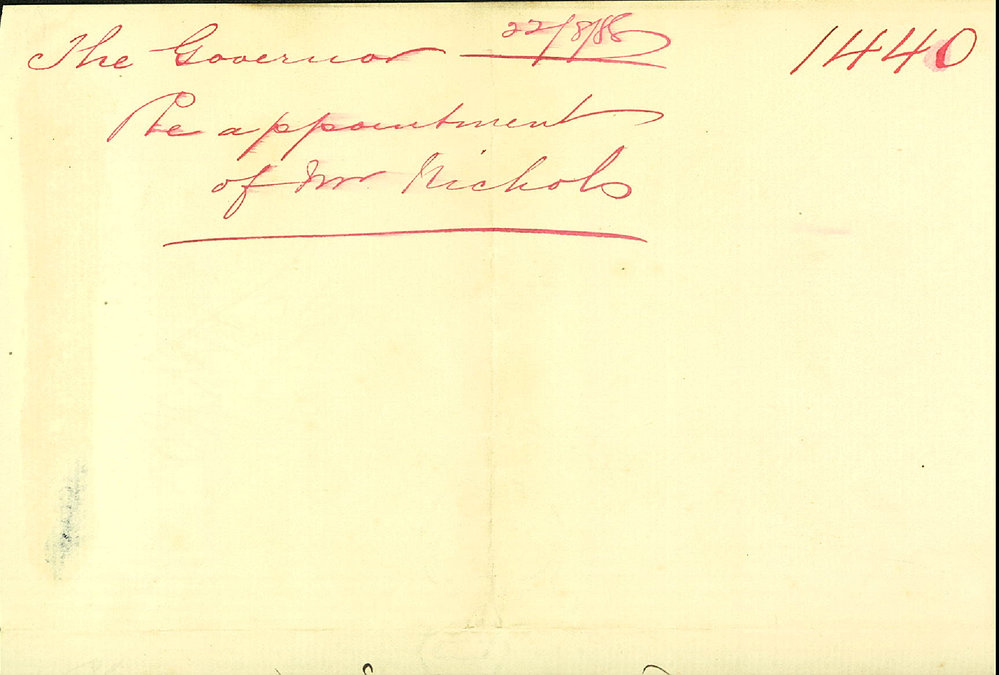 The Governor 22/8/88 1440
Re appointment
of Mr Nichols